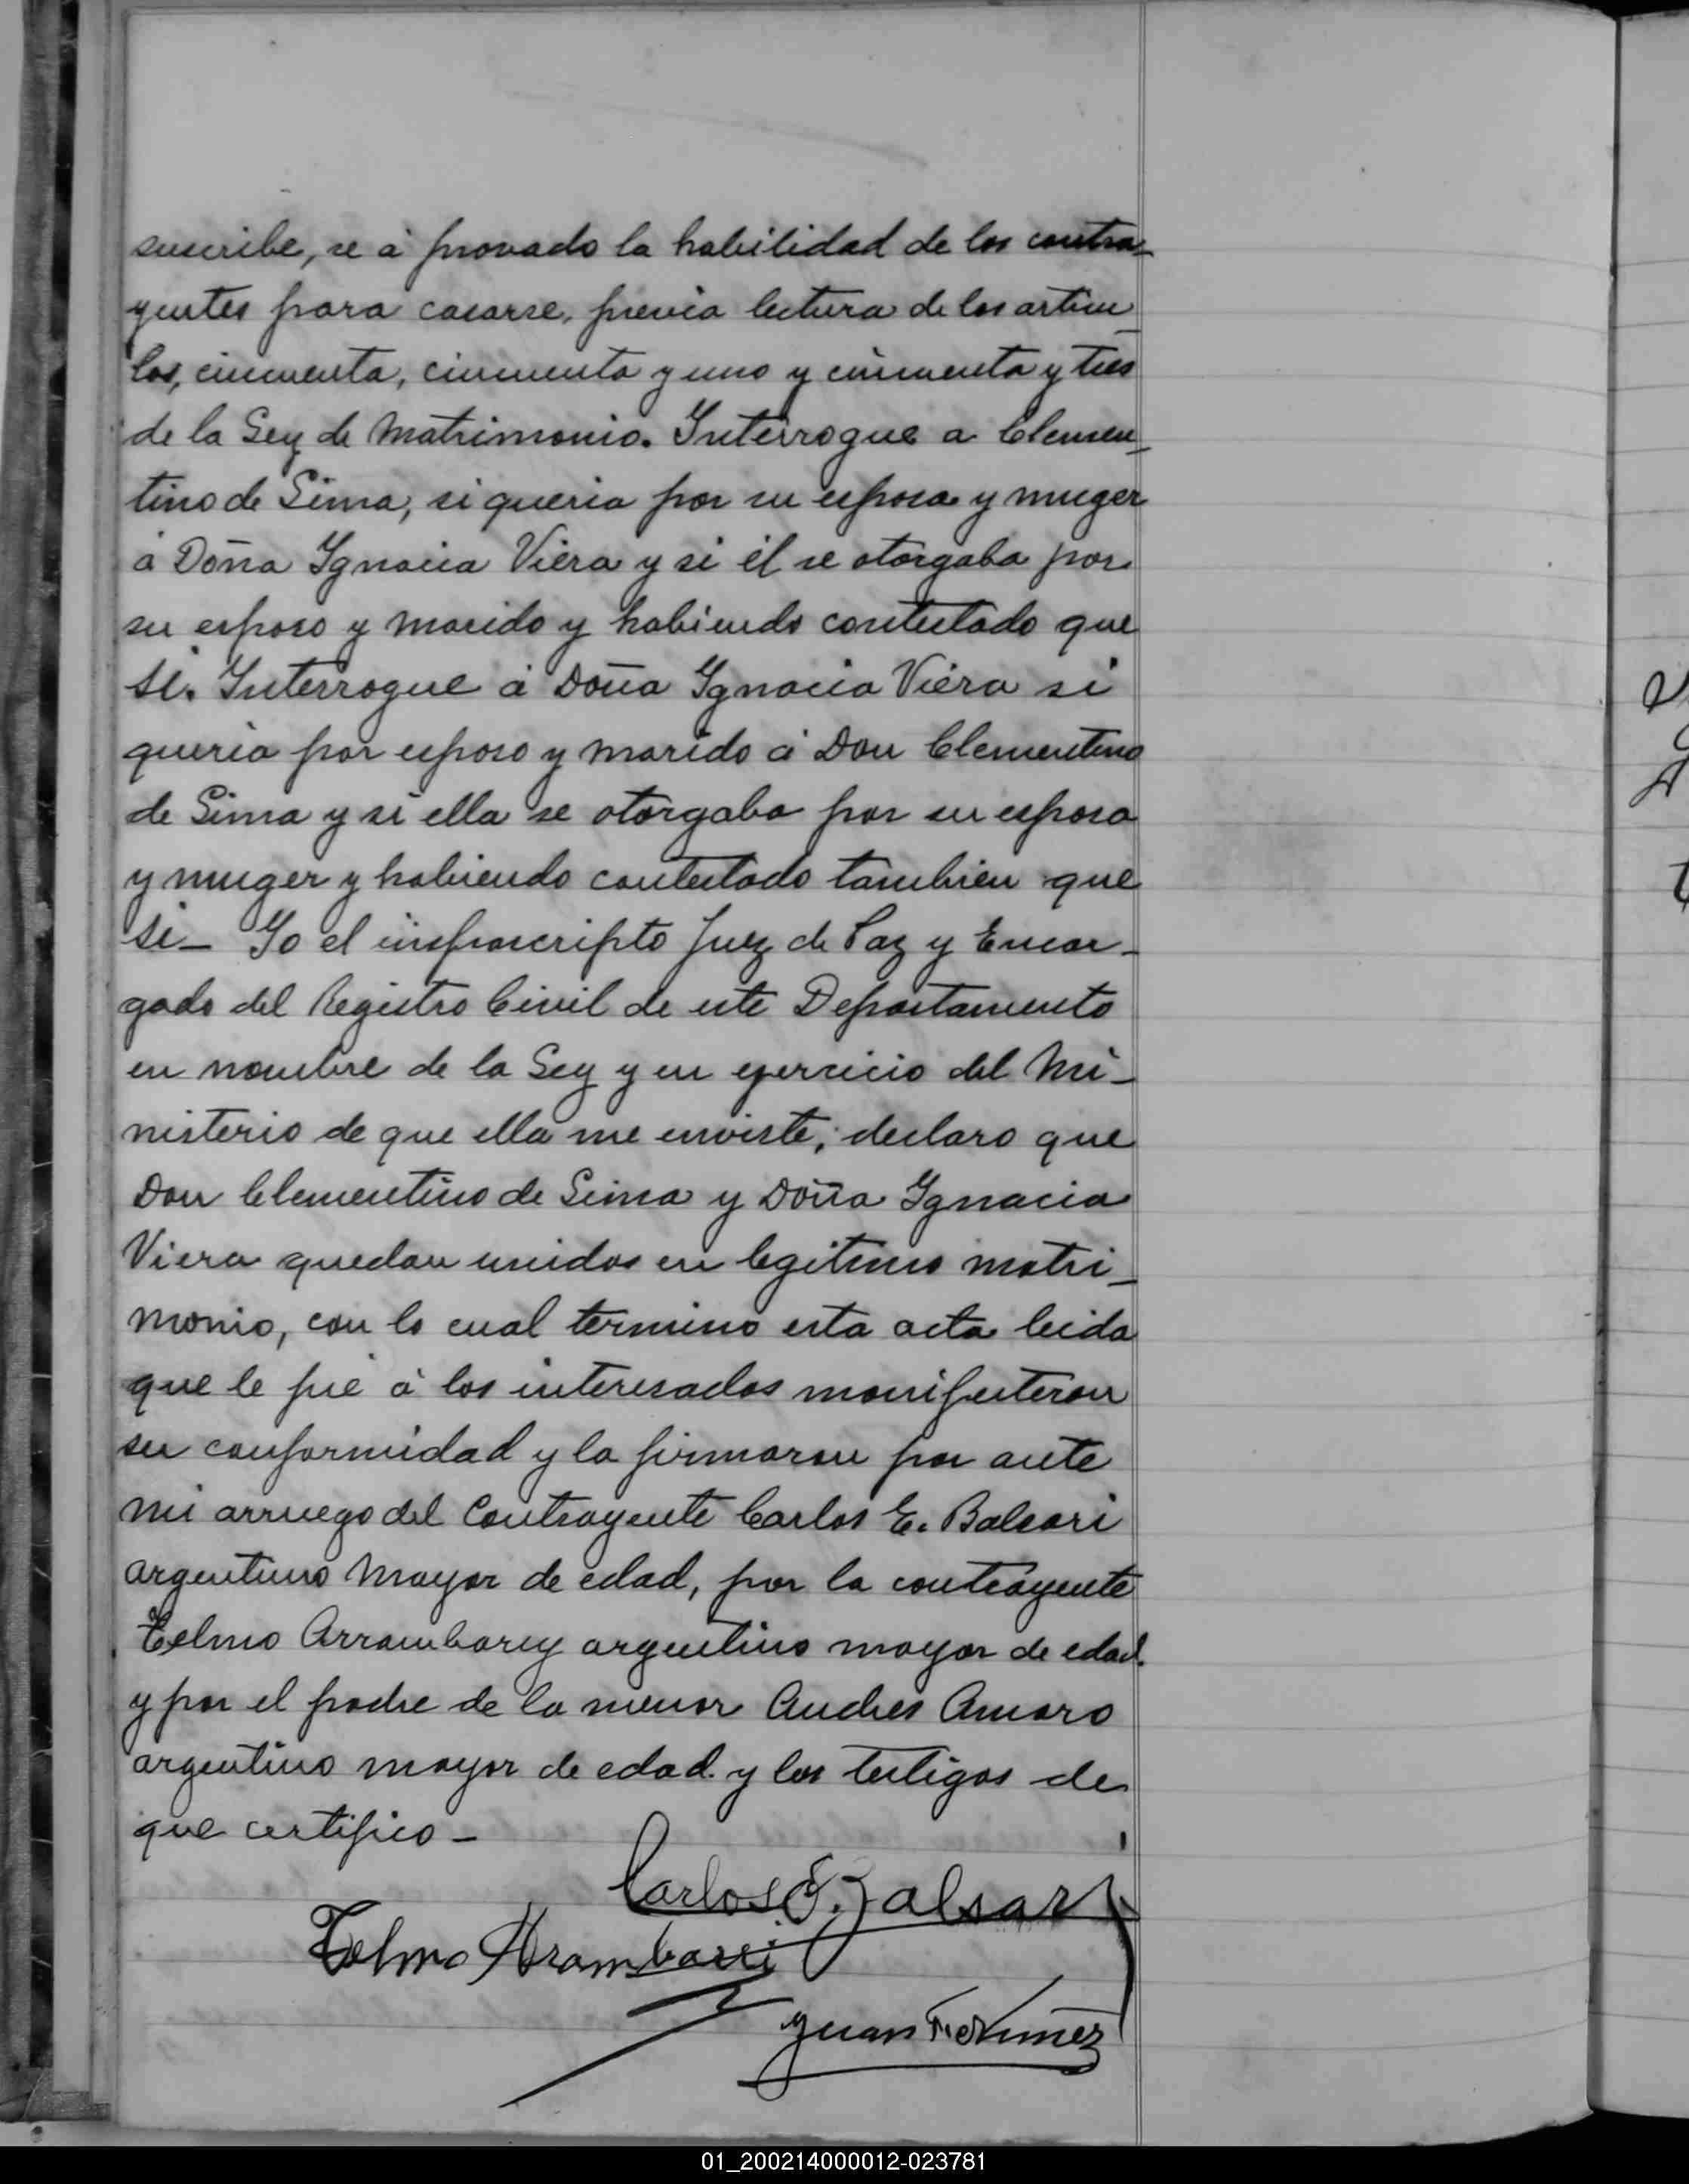 suscribe, se á provado la habilidad de los contra-
yentes para casarse, previa lectura de los articu-
los, cincuenta, cincuenta y uno y cincuenta y tres
de la Ley de Matrimonio. Interrogue a Clemen-
tino de Lima, si queria por su esposa y muger
á Doña Ignacia Viera y si él se otorgaba por
su esposo y marido y habiendo contestado que
si. Interrogue á Doña Ignacia Viera si
queria por esposo y marido á Don Clementino
de Lima y si ella se otorgaba por su esposa
y muger y habiendo contestado tambien que
si - Yo el infrascripto Juez de Paz y Encar-
gado del Registro Civil de este Departamento
en nombre de la Ley y en ejercicio del Mi-
nisterio de que ella me enviste, declaro que
Don Clementino de Lima y Doña Ignacia
Viera quedan unidos en legitimo matri-
monio, con lo cual termino esta acta leida
que le fué á los interesados manifesteron
su conformidad y la firmaron por ante
mi arruego del Contrayente Carlos E. Balsari
argentino Mayor de edad, por la contrayente
Telmo Arrambarey argentino mayor de edad.
y por el padre de la menor Andres Amaro
argentino mayor de edad. y los testigos de
que certifico -
Carlos E. Balsari
Telmo Arambarri
Juan F. Nuñez
01_200214000012-023781